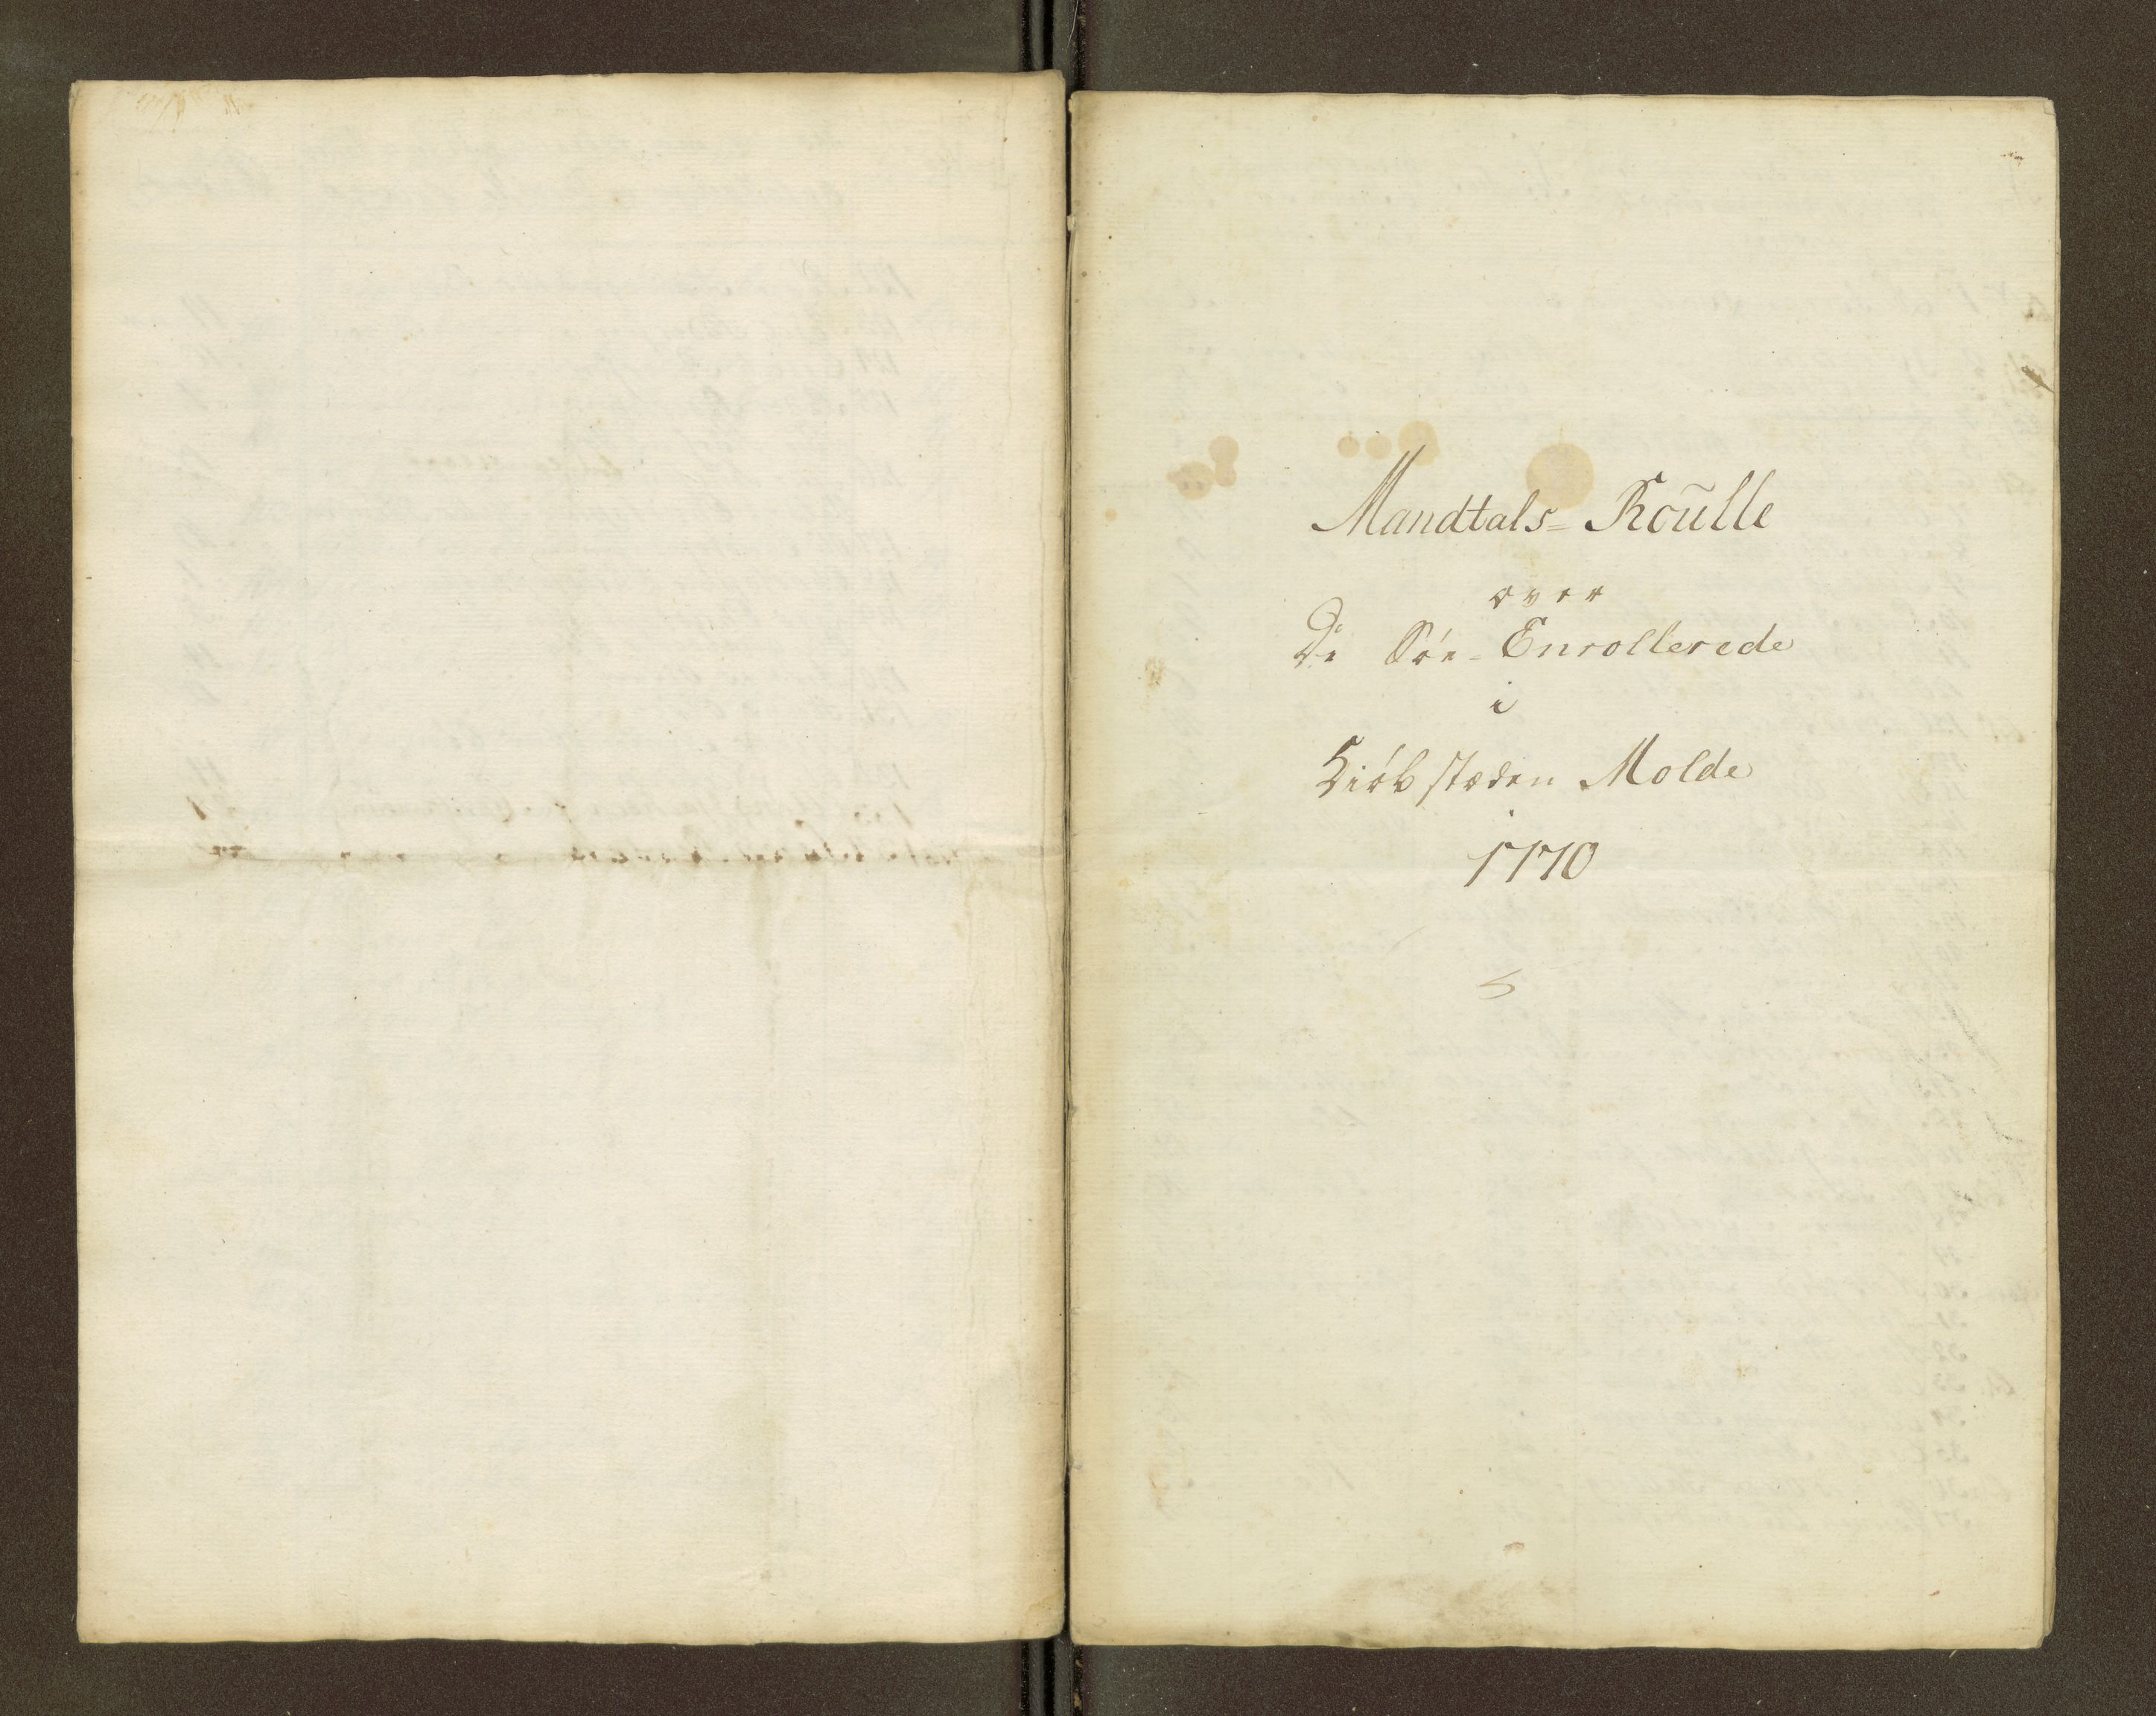 Mandtals- Roülle
over
De Søe-Enrollerede
i
Kiøbstæden Molde
1770